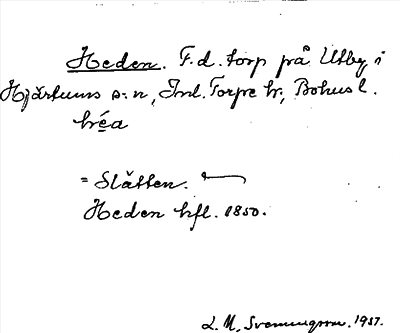 Heden. F.d. torp på Utby i
Hjärtums s:n, Inl. Torpe hr, Bohusl.
héa
= Slätten.
Heden hfl. 1850.
L. M. Svenungsson. 1937.